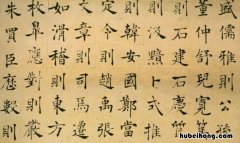 儒雅則公孫
董仲舒兒寬篤
則石建石慶質
則汲黯卜式推
則韓安國鄭當
定令則趙禹張
文章則司馬遷
如滑稽則東方
枚皋應對則嚴
朱買臣曆數則
hubeihong.com